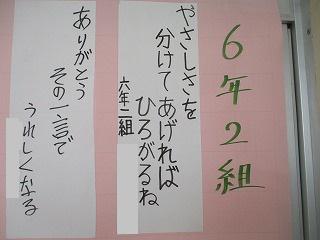 6年2組
やさしさを
分けてあげれば
ひろがるね
六年二組
ありがとう
その一言で
うれしくなる